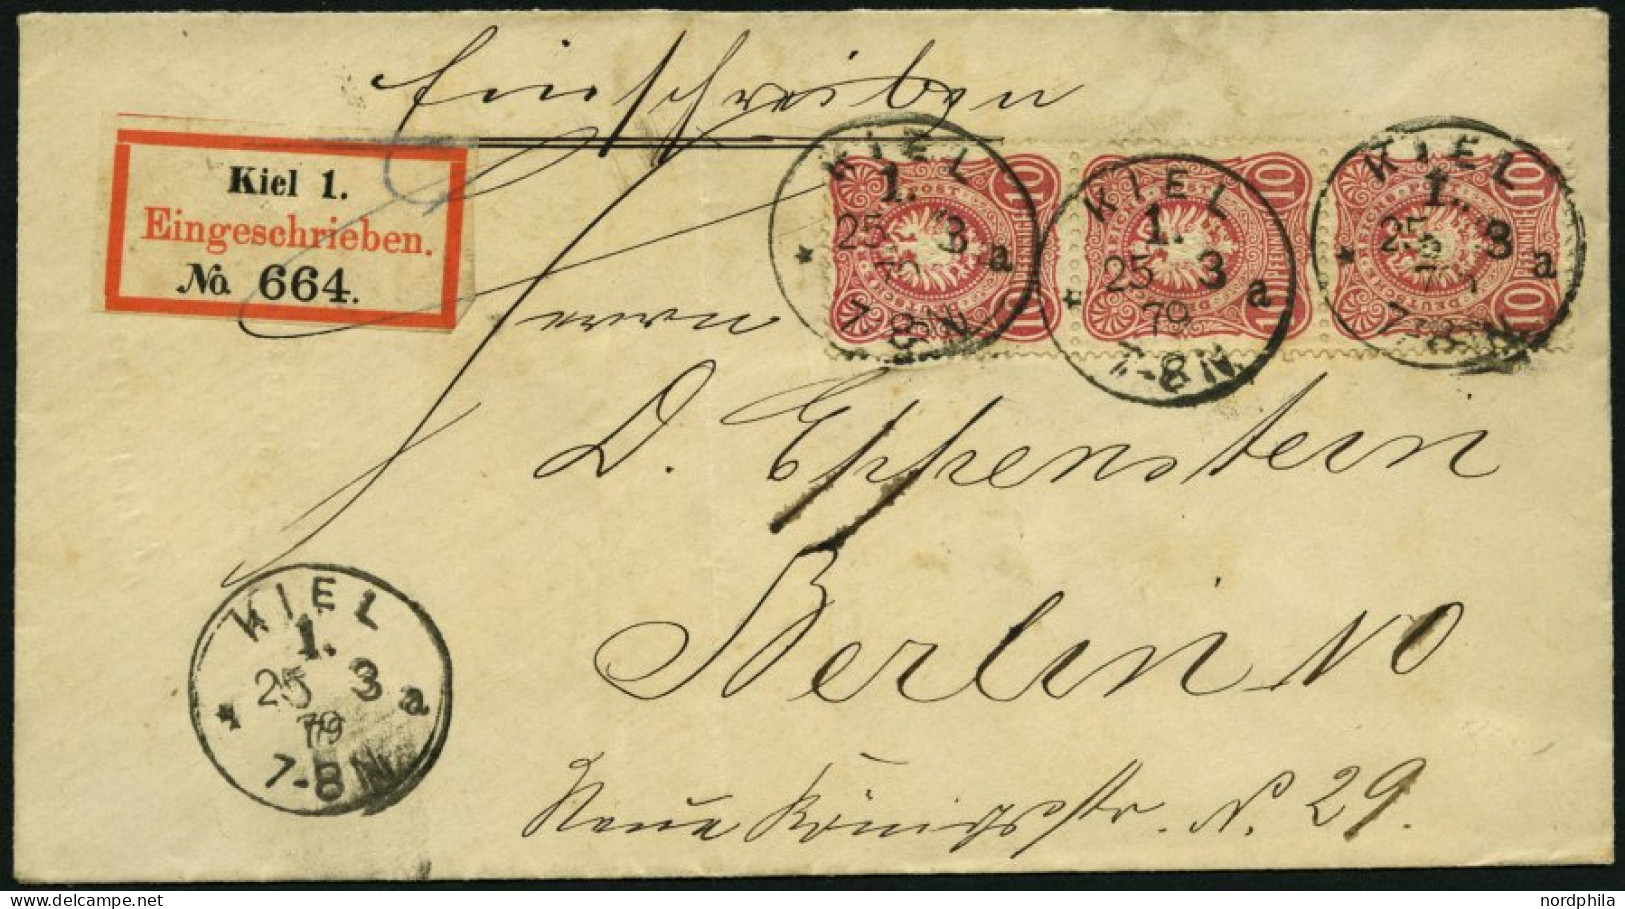 Einschreiben
Kiel 1.
Eingeschrieben.
No 664.
KIEL
1.
25 3
a
79
7-8N
KIEL
1.
25 3
a
79
7-8N
KIEL
1.
25 3
a
79
7-8N
10
10
10
10
10
10
Herrn
D. Eppenstein
Berlin NO
Neue Königsstr. N. 29.
KIEL
1.
25 3
a
79
7-8N
nordphila